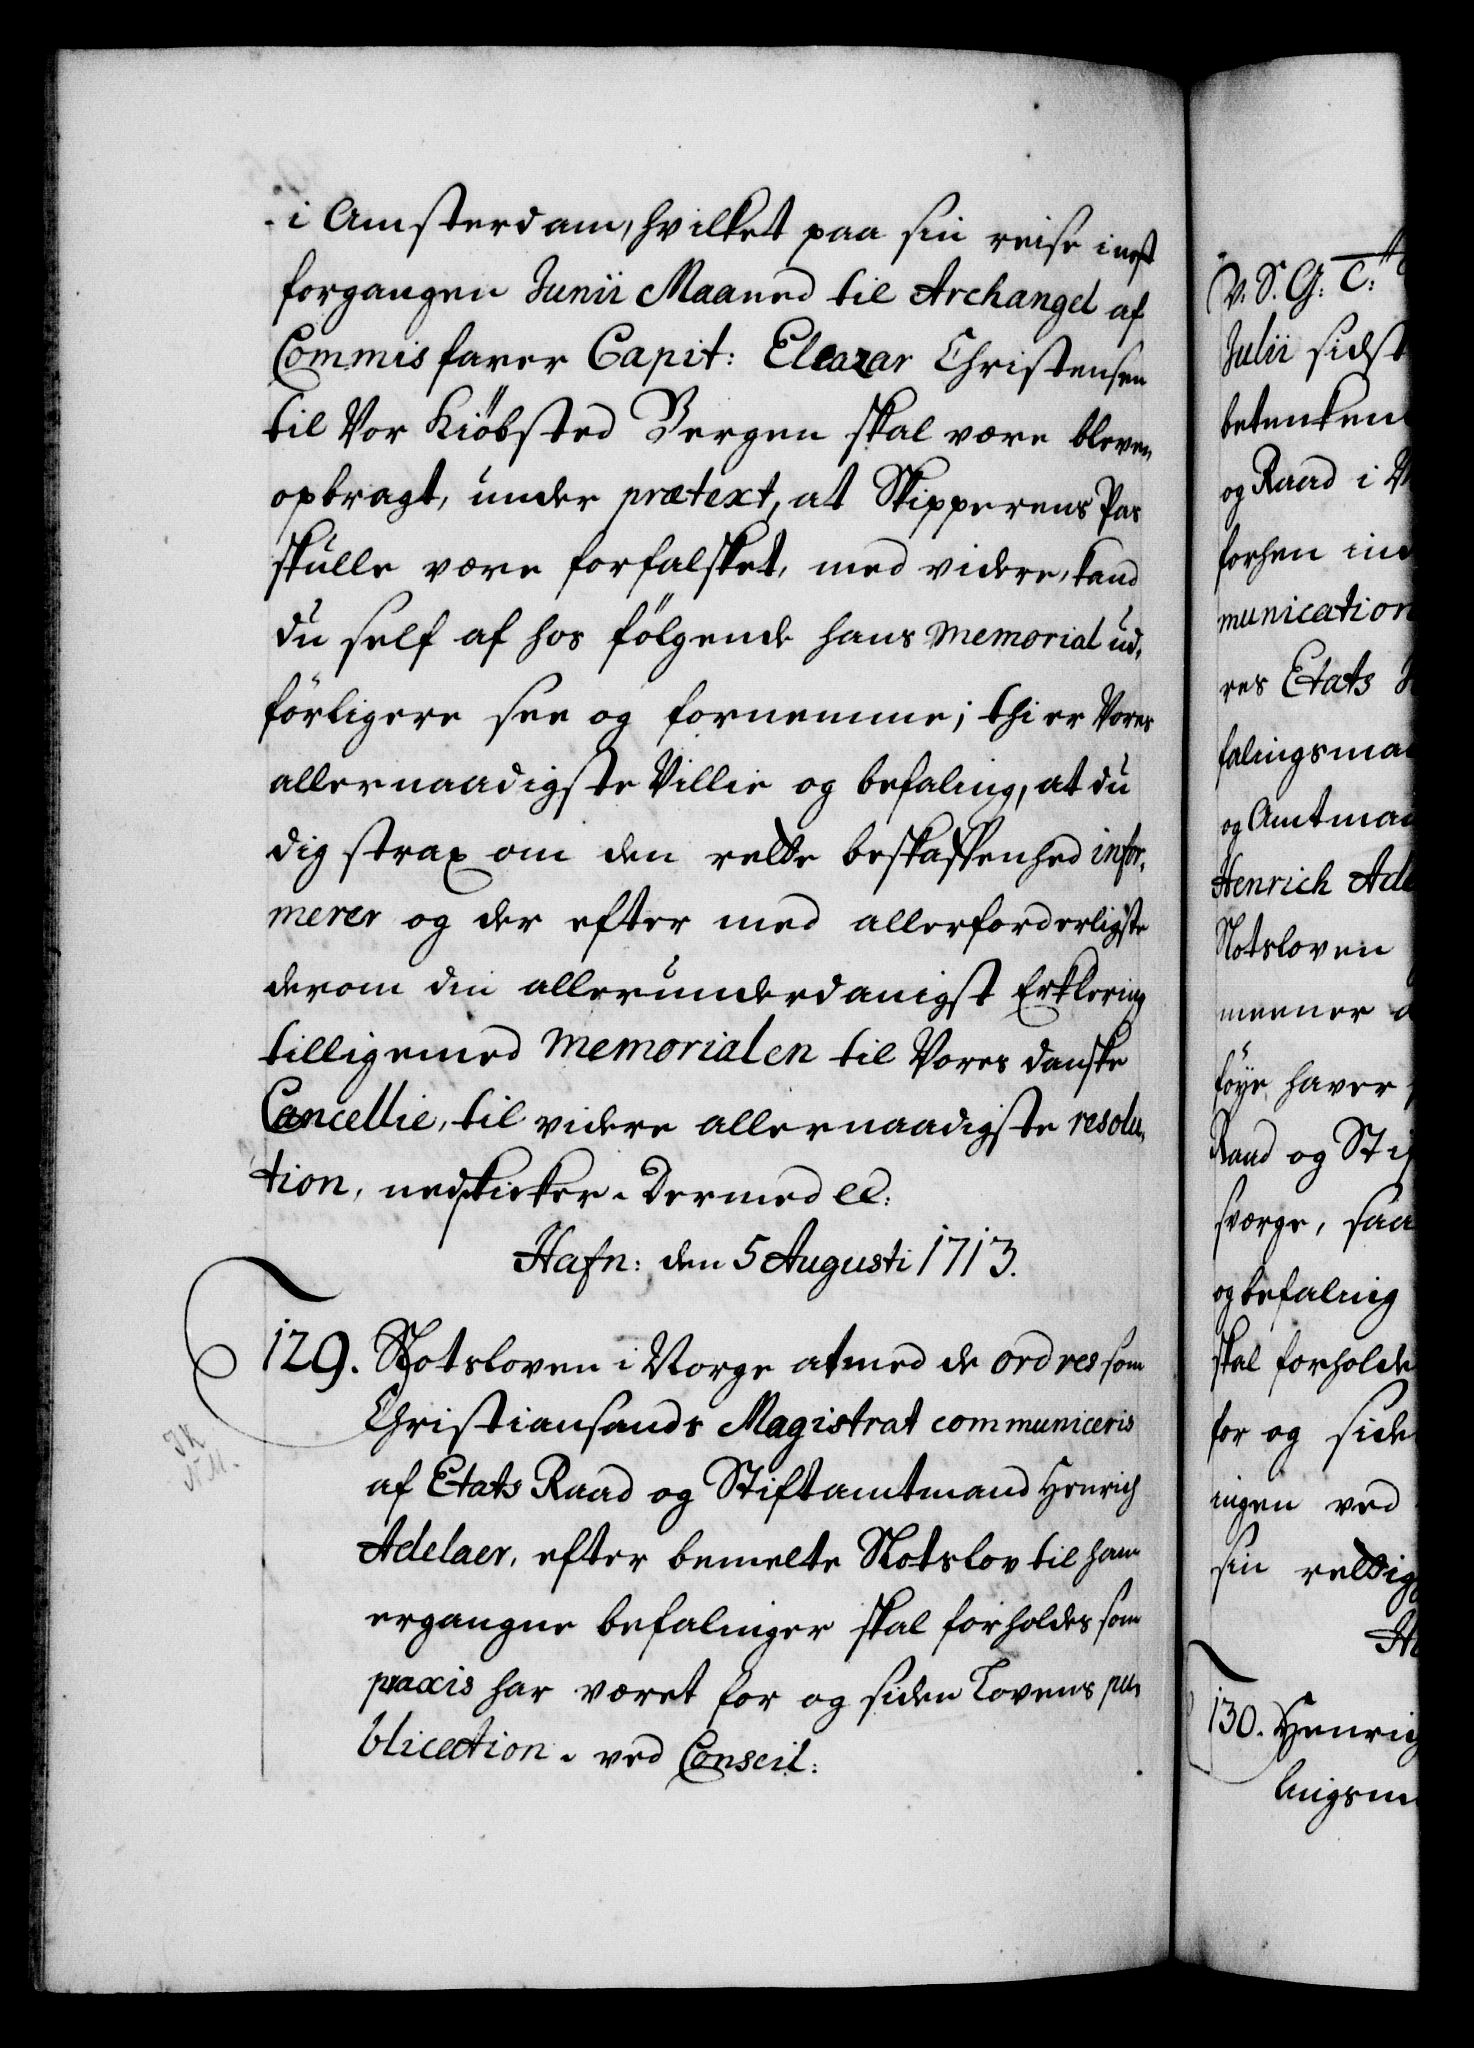 i Amsterdam, hvilket paa sin reise i nest
forgangen Junii Maaned til Archangel af
Commis farer Capit: Eleazar Christensen
til Vor Kiöbsted Bergen skal være bleven
opbragt, under prætext, at Skipperens Pas
skulle være forfalsket, med videre, kand
du self af hos fölgende hans Memorial ud,
förligere see og fornemme; thi er Vores
allernaadigste Villie og befaling, at du
dig strax om den rette beskaffenhed infor,
merer og der efter med allerforderligste
derom din allerunderdanigst Erklering
tilligemed Memorialen til Vores danske
Cancellie, til videre allernaadigste resolu,
tion, nedskicker. Dermed etc:
Hafn: den 5 Augusti 1713.
129. Slotsloven i Norge at med de ordres som
Christiansands Magistrat communiceris
af Etats Raad og Stiftamtmand Henrich
Adelaer, efter bemelte Slotslov til ham
ergangne befalinger skal forholdes som
praxis har været for og siden Lovens pu,
blication. ved Conseil:
JK
N.M.
V. S. G. T:
Julii sidst
betenken
og Raad i
forhen in
munication
res Etats
falings ma
og Amtma
Henrich Ade
Slotsloven
meener
föye haver
Raad og Stif
sværge, saa
og befaling
skal forholde
for og side
ingen ved
sin rettig
Ha
130. Henrig
lingsm